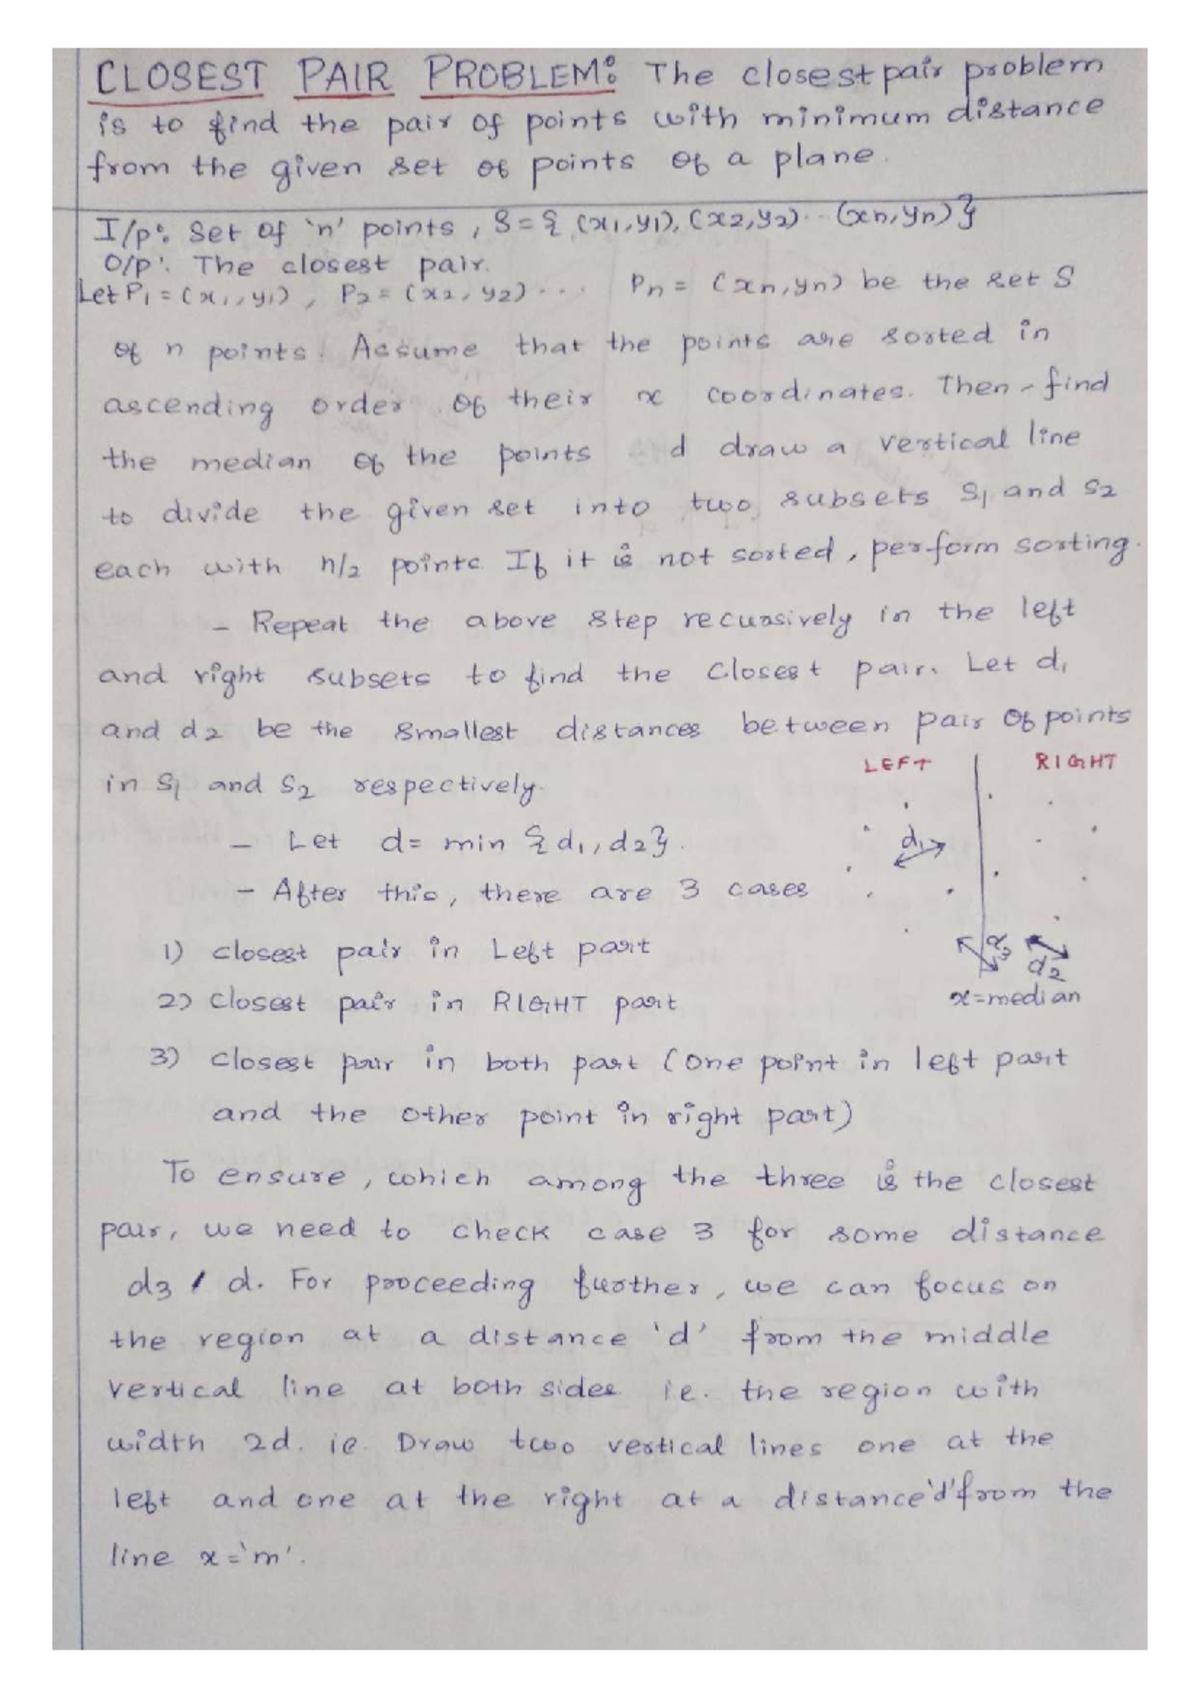 CLOSEST PAIR PROBLEM: The closest pair problem
is to find the pair of points with minimum distance
from the given set of points of a plane.
I/p: Set of 'n' points, S = { (x1,y1), (x2,y2)... (xn,yn) }
O/p: The closest pair.
Let P1 = (x1, y1), P2 = (x2, y2)... Pn = (xn,yn) be the set S
of n points. Assume that the points are sorted in
ascending order of their x coordinates. Then find
the median of the points d draw a vertical line
to divide the given set into two subsets S1 and S2
each with n/2 points If it is not sorted, perform sorting.
- Repeat the above step recursively in the left
and right subsets to find the closest pair. Let d1
and d2 be the smallest distances between pair of points
in S1 and S2 respectively.
LEFT RIGHT
- Let d = min {d1, d2}.
d1
- After this, there are 3 cases
1) closest pair in Left part
d3 d2
2) Closest pair in RIGHT part
x=median
3) closest pair in both part (one point in left part
and the other point in right part)
To ensure, which among the three is the closest
pair, we need to check case 3 for some distance
d3 / d. For proceeding further, we can focus on
the region at a distance 'd' from the middle
vertical line at both sides ie. the region with
width 2d. ie. Draw two vertical lines one at the
left and one at the right at a distance 'd' from the
line x = 'm'.